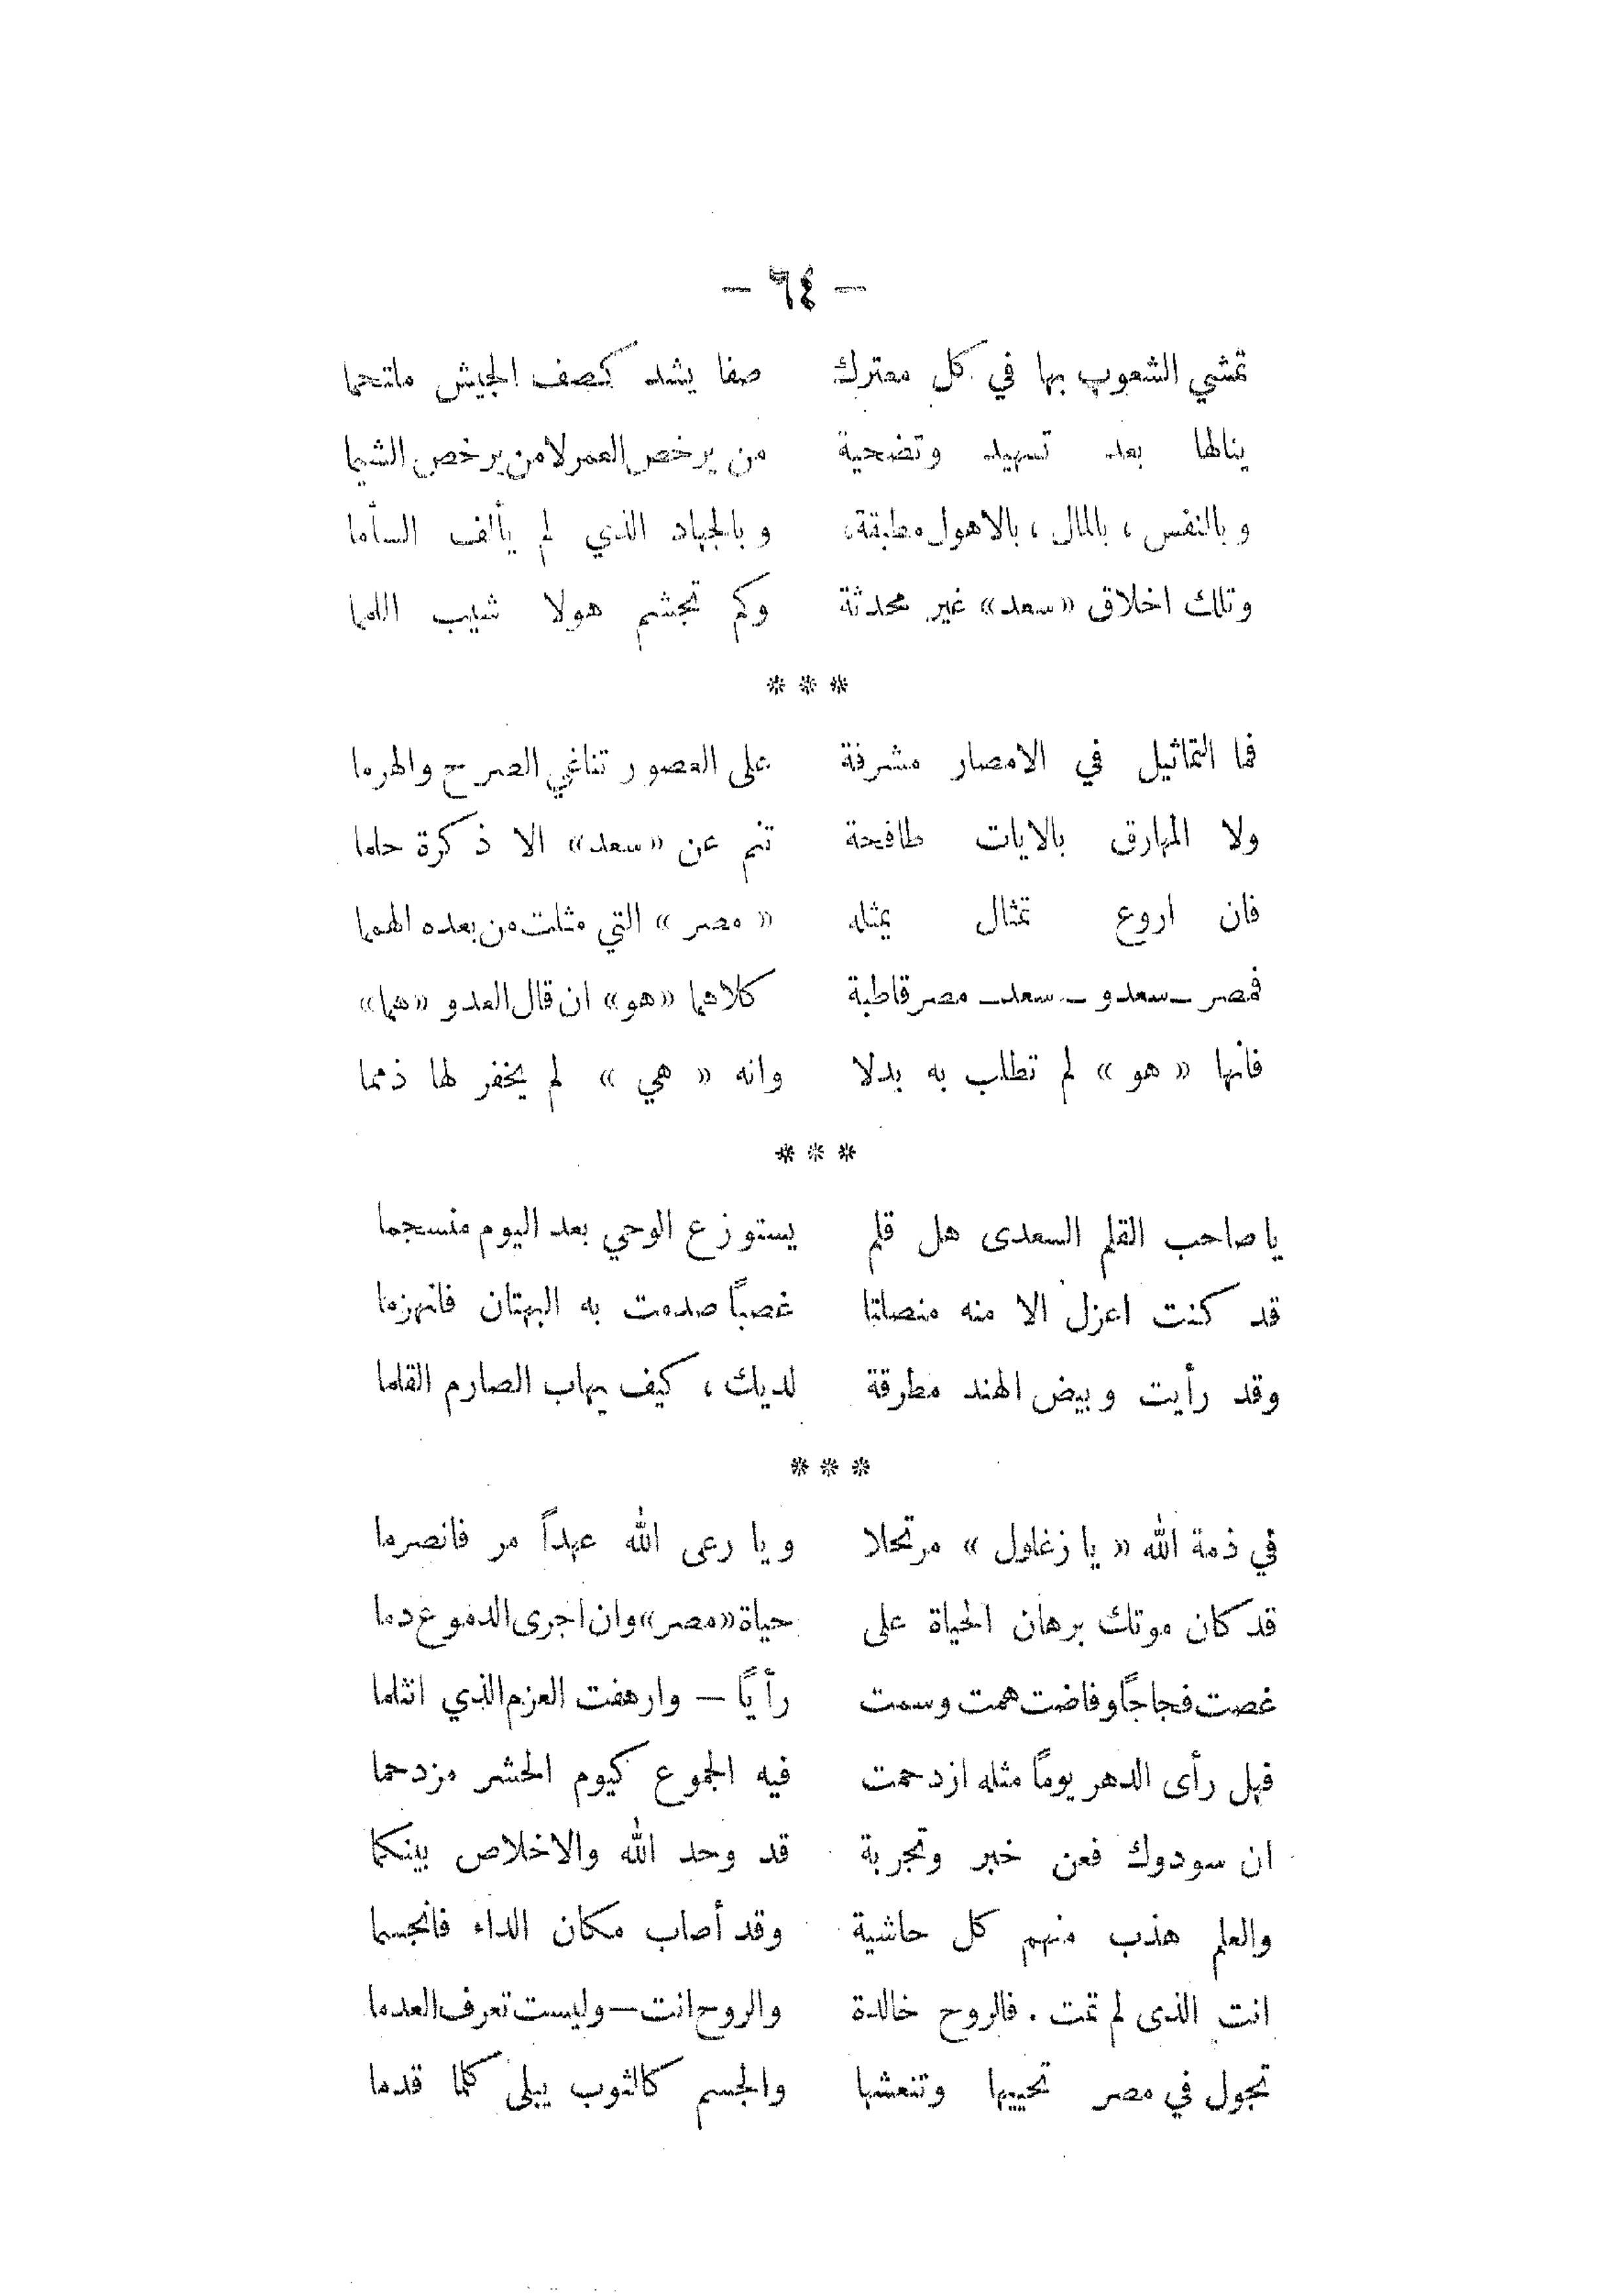 - ٦٤ -
تمشي الشعوب بها في كل معترك صفا يشد كصف الجيش ملتحما
ينالها بعد تسهيد وتضحية من يرخص العمر لا من يرخص الشيما
وبالنفس ، بالمال ، بالاهول مطبقة، وبالجهاد الذي لم يألف السأما
وتلك اخلاق «سعد» غير محدثة وكم تجشم هولا شيب اللمما
***
فما التماثيل في الامصار مشرفة على العصور تناغي الصرح والهرما
ولا المهارق بالايات طافحة تنم عن «سعد» الا ذكرة حلما
فان اروع تمثال يمثله « مصر » التي مثلت من بعده الهمما
فمصر ـ سعد و ـ سعد ـ مصر قاطبة كلاهما «هو» ان قال العدو «هما»
فانها « هو » لم تطلب به بدلا وانه « هي » لم يخفر لها ذمما
***
يا صاحب القلم السعدى هل قلم يستوزع الوحي بعد اليوم منسجما
قد كنت اعزل الا منه منصلتا غصباً صدمت به البهتان فانهزما
وقد رأيت وبيض الهند مطرقة لديك ، كيف يهاب الصارم القلما
***
في ذمة الله « يا زغلول » مرتحلا ويا رعى الله عهداً مر فانصرما
قد كان موتك برهان الحياة على حياة «مصر» وان اجرى الدموع دما
غصت فجاجاً وفاضت همت وسمت رأياً – وارهفت العزم الذي انثلما
فهل رأى الدهر يوماً مثله ازدحمت فيه الجموع كيوم الحشر مزدحما
ان سودوك فعن خبر وتجربة قد وحد الله والاخلاص بينكما
والعلم هذب منهم كل حاشية وقد أصاب مكان الداء فانحسما
انت الذى لم تمت . فالروح خالدة والروح انت – وليست تعرف العدما
تجول في مصر تحييها وتنعشها والجسم كالثوب يبلى كلما قدما